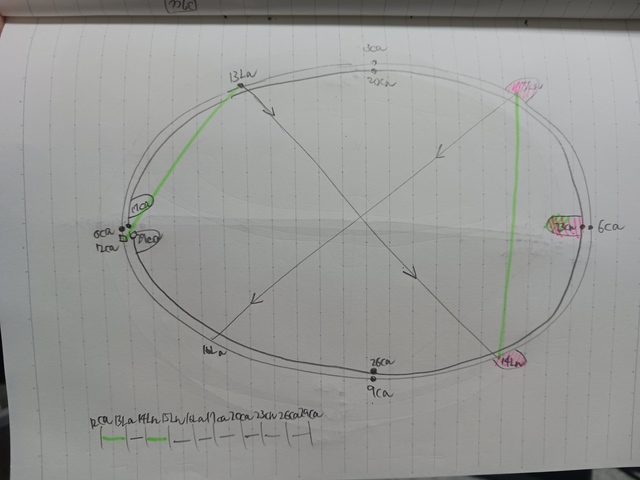 3Ca
20Ca
13Ln
17Ln
17Ca
0Ca
12Ca
29Ca
23Ca
6Ca
16Ln
26Ca
9Ca
14Ln
12Ca 13Ln 14Ln 15Ln 16Ln 17Ca 20Ca 23Ca 26Ca 29Ca